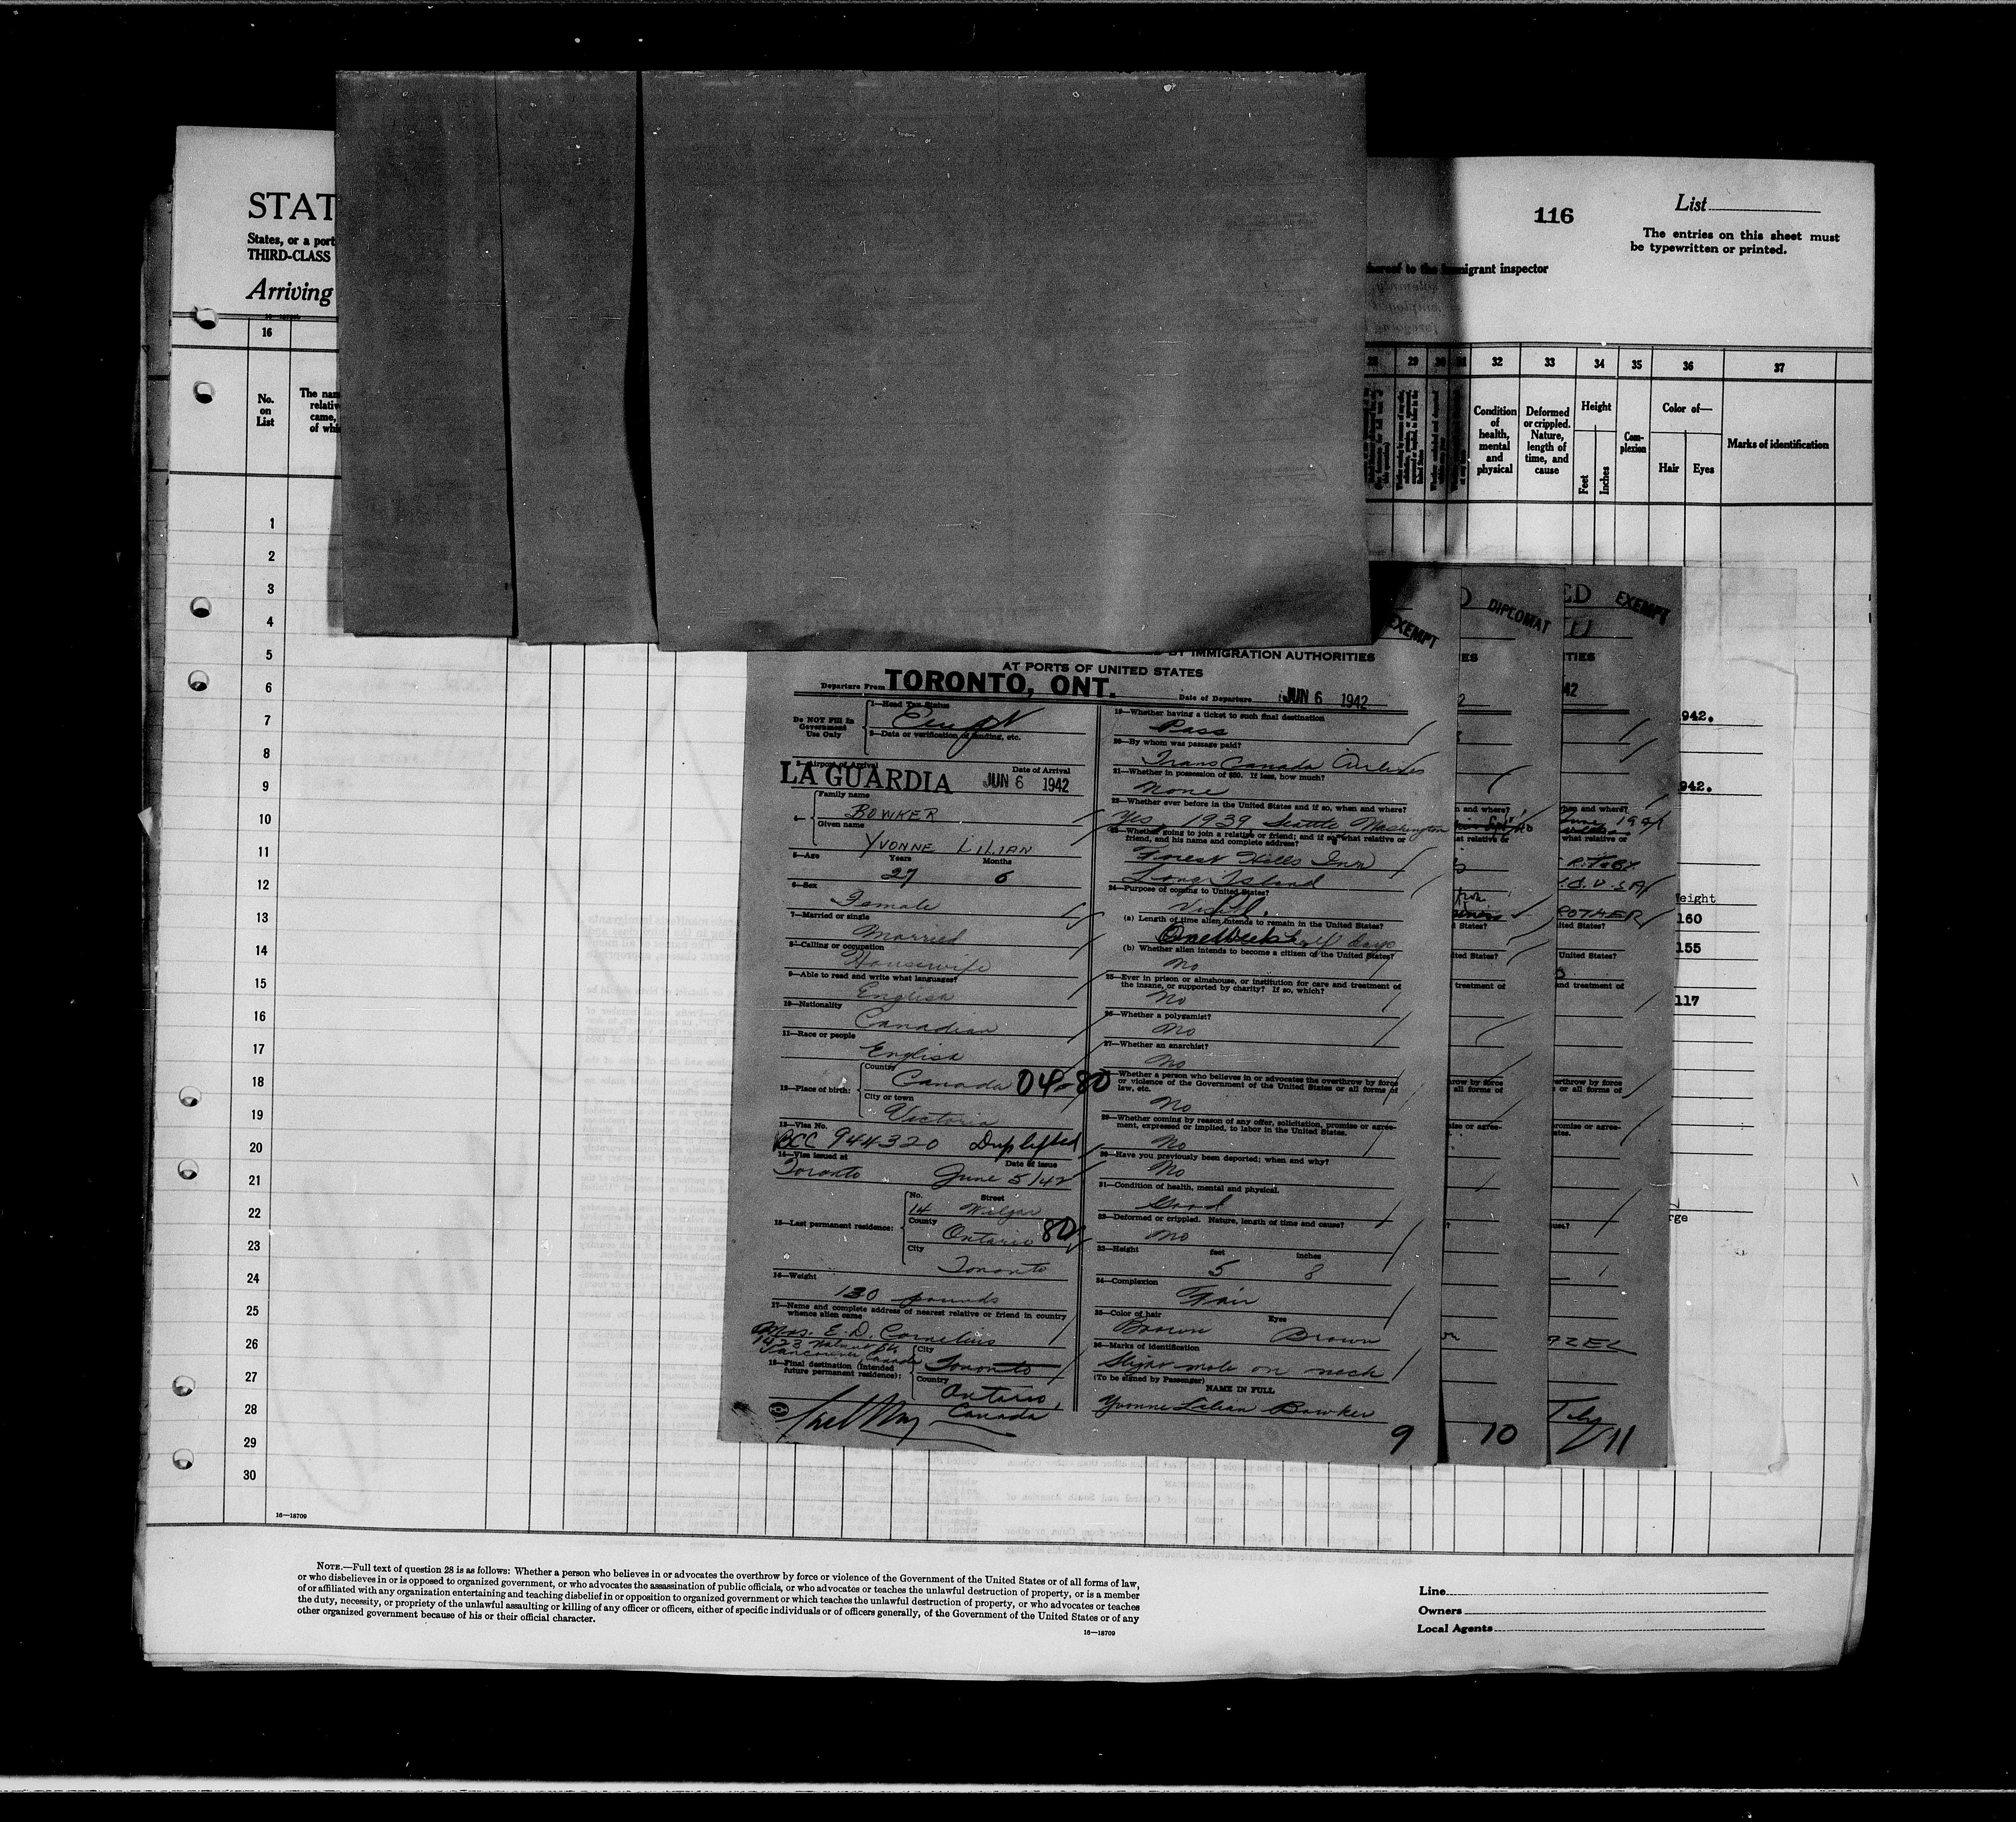 STAT
States, or a port
THIRD-CLASS
Arriving
116
List
The entries on this sheet must
be typewritten or printed.
hereof to the immigrant inspector
16
No.
on
List
The nam
relativ
came,
of whi
28 29 30 31 32 33 34 35 36 37
Condition
of
health,
mental
and
physical
Deformed
or crippled.
Nature,
length of
time, and
cause
Height
Feet
Inches
Com-
plexion
Color of—
Hair
Eyes
Marks of identification
1
2
3
4
5
6
7
8
9
10
11
12
13
14
15
16
17
18
19
20
21
22
23
24
25
26
27
28
29
30
16—18709
EXEMPT
BY IMMIGRATION AUTHORITIES
AT PORTS OF UNITED STATES
Departure From TORONTO, ONT.
Date of Departure JUN 6 1942
Do NOT Fill In
Government
Use Only
1—Head Tax Status
2—Data or verification of landing, etc.
3—Airport of Arrival
Date of Arrival
LA GUARDIA JUN 6 1942
4—
Family name
BOWKER
Given name
YVONNE LILIAN
5—Age Years Months
27 6
6—Sex
Female
7—Married or single
Married
8—Calling or occupation
Housewife
9—Able to read and write what languages?
English
10—Nationality
Canadian
11—Race or people
English
12—Place of birth:
Country
Canada 04-80
City or town
Victoria
13—Visa No.
BCC 944320 Dup lifted
14—Visa issued at Date of issue
Toronto June 5/42
15—Last permanent residence:
No. Street
14 Wilgar
County
Ontario 80
City
Toronto
16—Weight
130 pounds
17—Name and complete address of nearest relative or friend in country
whence alien came
Mrs. E. D. Cornelius
1423 Walnut St.
Vancouver Canada
18—Final destination (Intended
future permanent residence):
City
Toronto
Country
Ontario,
Canada
19—Whether having a ticket to such final destination
Pass
20—By whom was passage paid?
Trans Canada Airlines
21—Whether in possession of $50. If less, how much?
None
22—Whether ever before in the United States and if so, when and where?
Yes, 1939 Seattle Washington
23—Whether going to join a relative or friend; and if so, what relative or
friend, and his name and complete address?
Forest Hills Inn
Long Island
24—Purpose of coming to United States?
Visit.
(a) Length of time alien intends to remain in the United States?
One week days
(b) Whether alien intends to become a citizen of the United States?
No
25—Ever in prison or almshouse, or institution for care and treatment of
the insane, or supported by charity? If so, which?
No
26—Whether a polygamist?
No
27—Whether an anarchist?
No
28—Whether a person who believes in or advocates the overthrow by force
or violence of the Government of the United States or all forms of
law, etc.
No
29—Whether coming by reason of any offer, solicitation, promise or agree-
ment, expressed or implied, to labor in the United States.
No
30—Have you previously been deported; when and why?
No
31—Condition of health, mental and physical.
Good
32—Deformed or crippled. Nature, length of time and cause?
No
33—Height feet inches
5 8
34—Complexion
Fair
35—Color of hair Eyes
Brown Brown
36—Marks of identification
Slight mole on neck
(To be signed by Passenger)
NAME IN FULL
Yvonne Lilian Bowker
9
DIPLOMAT
10
EXEMPT
ROTHER
AZEL
11
942.
942.
eight
160
155
117
rge
NOTE.—Full text of question 28 is as follows: Whether a person who believes in or advocates the overthrow by force or violence of the Government of the United States or of all forms of law,
or who disbelieves in or is opposed to organized government, or who advocates the assassination of public officials, or who advocates or teaches the unlawful destruction of property, or is a member
of or affiliated with any organization entertaining and teaching disbelief in or opposition to organized government or which teaches the unlawful destruction of property, or who advocates or teaches
the duty, necessity, or propriety of the unlawful assaulting or killing of any officer or officers, either of specific individuals or of officers generally, of the Government of the United States or of any
other organized government because of his or their official character.
16—18709
Line
Owners
Local Agents